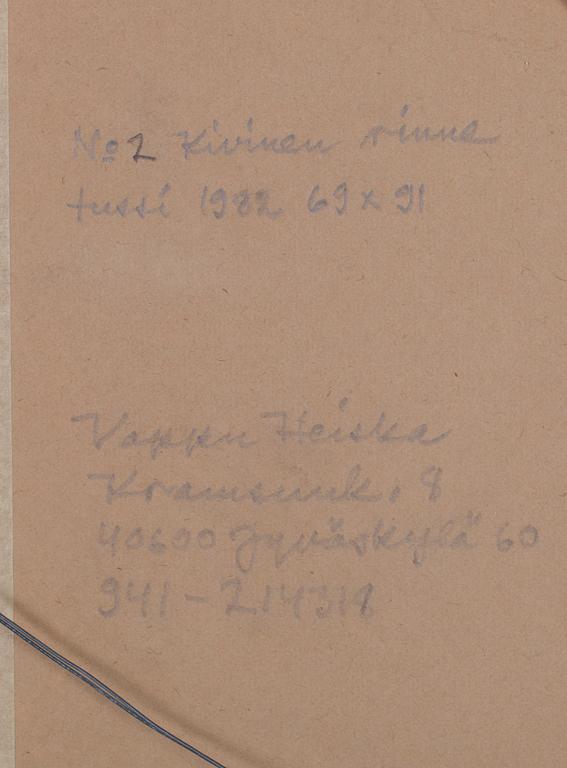 No 2 Kivinen rinne
tussi 1982 69 x 91
Vappu Heiska
Kramsunk. 8
40600 Jyväskylä 60
941-214318